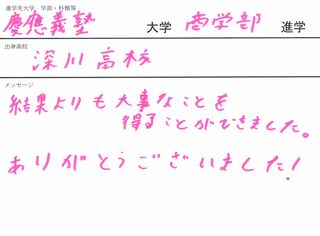 進学先大学、学部・科類等
慶應義塾 大学 商学部 進学
出身高校
深川高校
メッセージ
結果よりも大事なことを
得ることができました。
ありがとうございました!